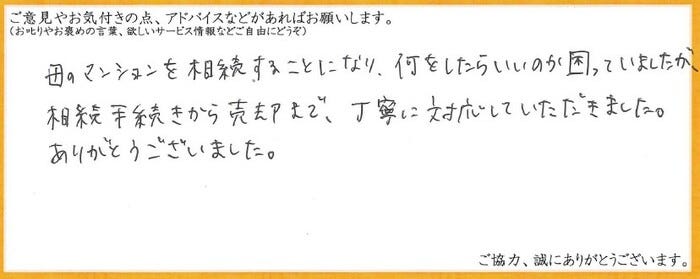 ご意見やお気付きの点、アドバイスなどがあればお願いします。
(お叱りやお褒めの言葉、欲しいサービス情報などご自由にどうぞ)
母のマンションを相続することになり、何をしたらいいのか困っていましたが、
相続手続きから売却まで、丁寧に対応していただきました。
ありがとうございました。
ご協力、誠にありがとうございます。